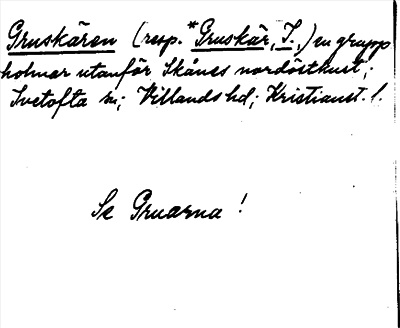 Gruskären (resp. *Gruskär, I.) en grupp
holmar utanför Skånes nordöstkust;
Ivetofta sn; Villands hd; Kristianst. l.
Se Gruarna!